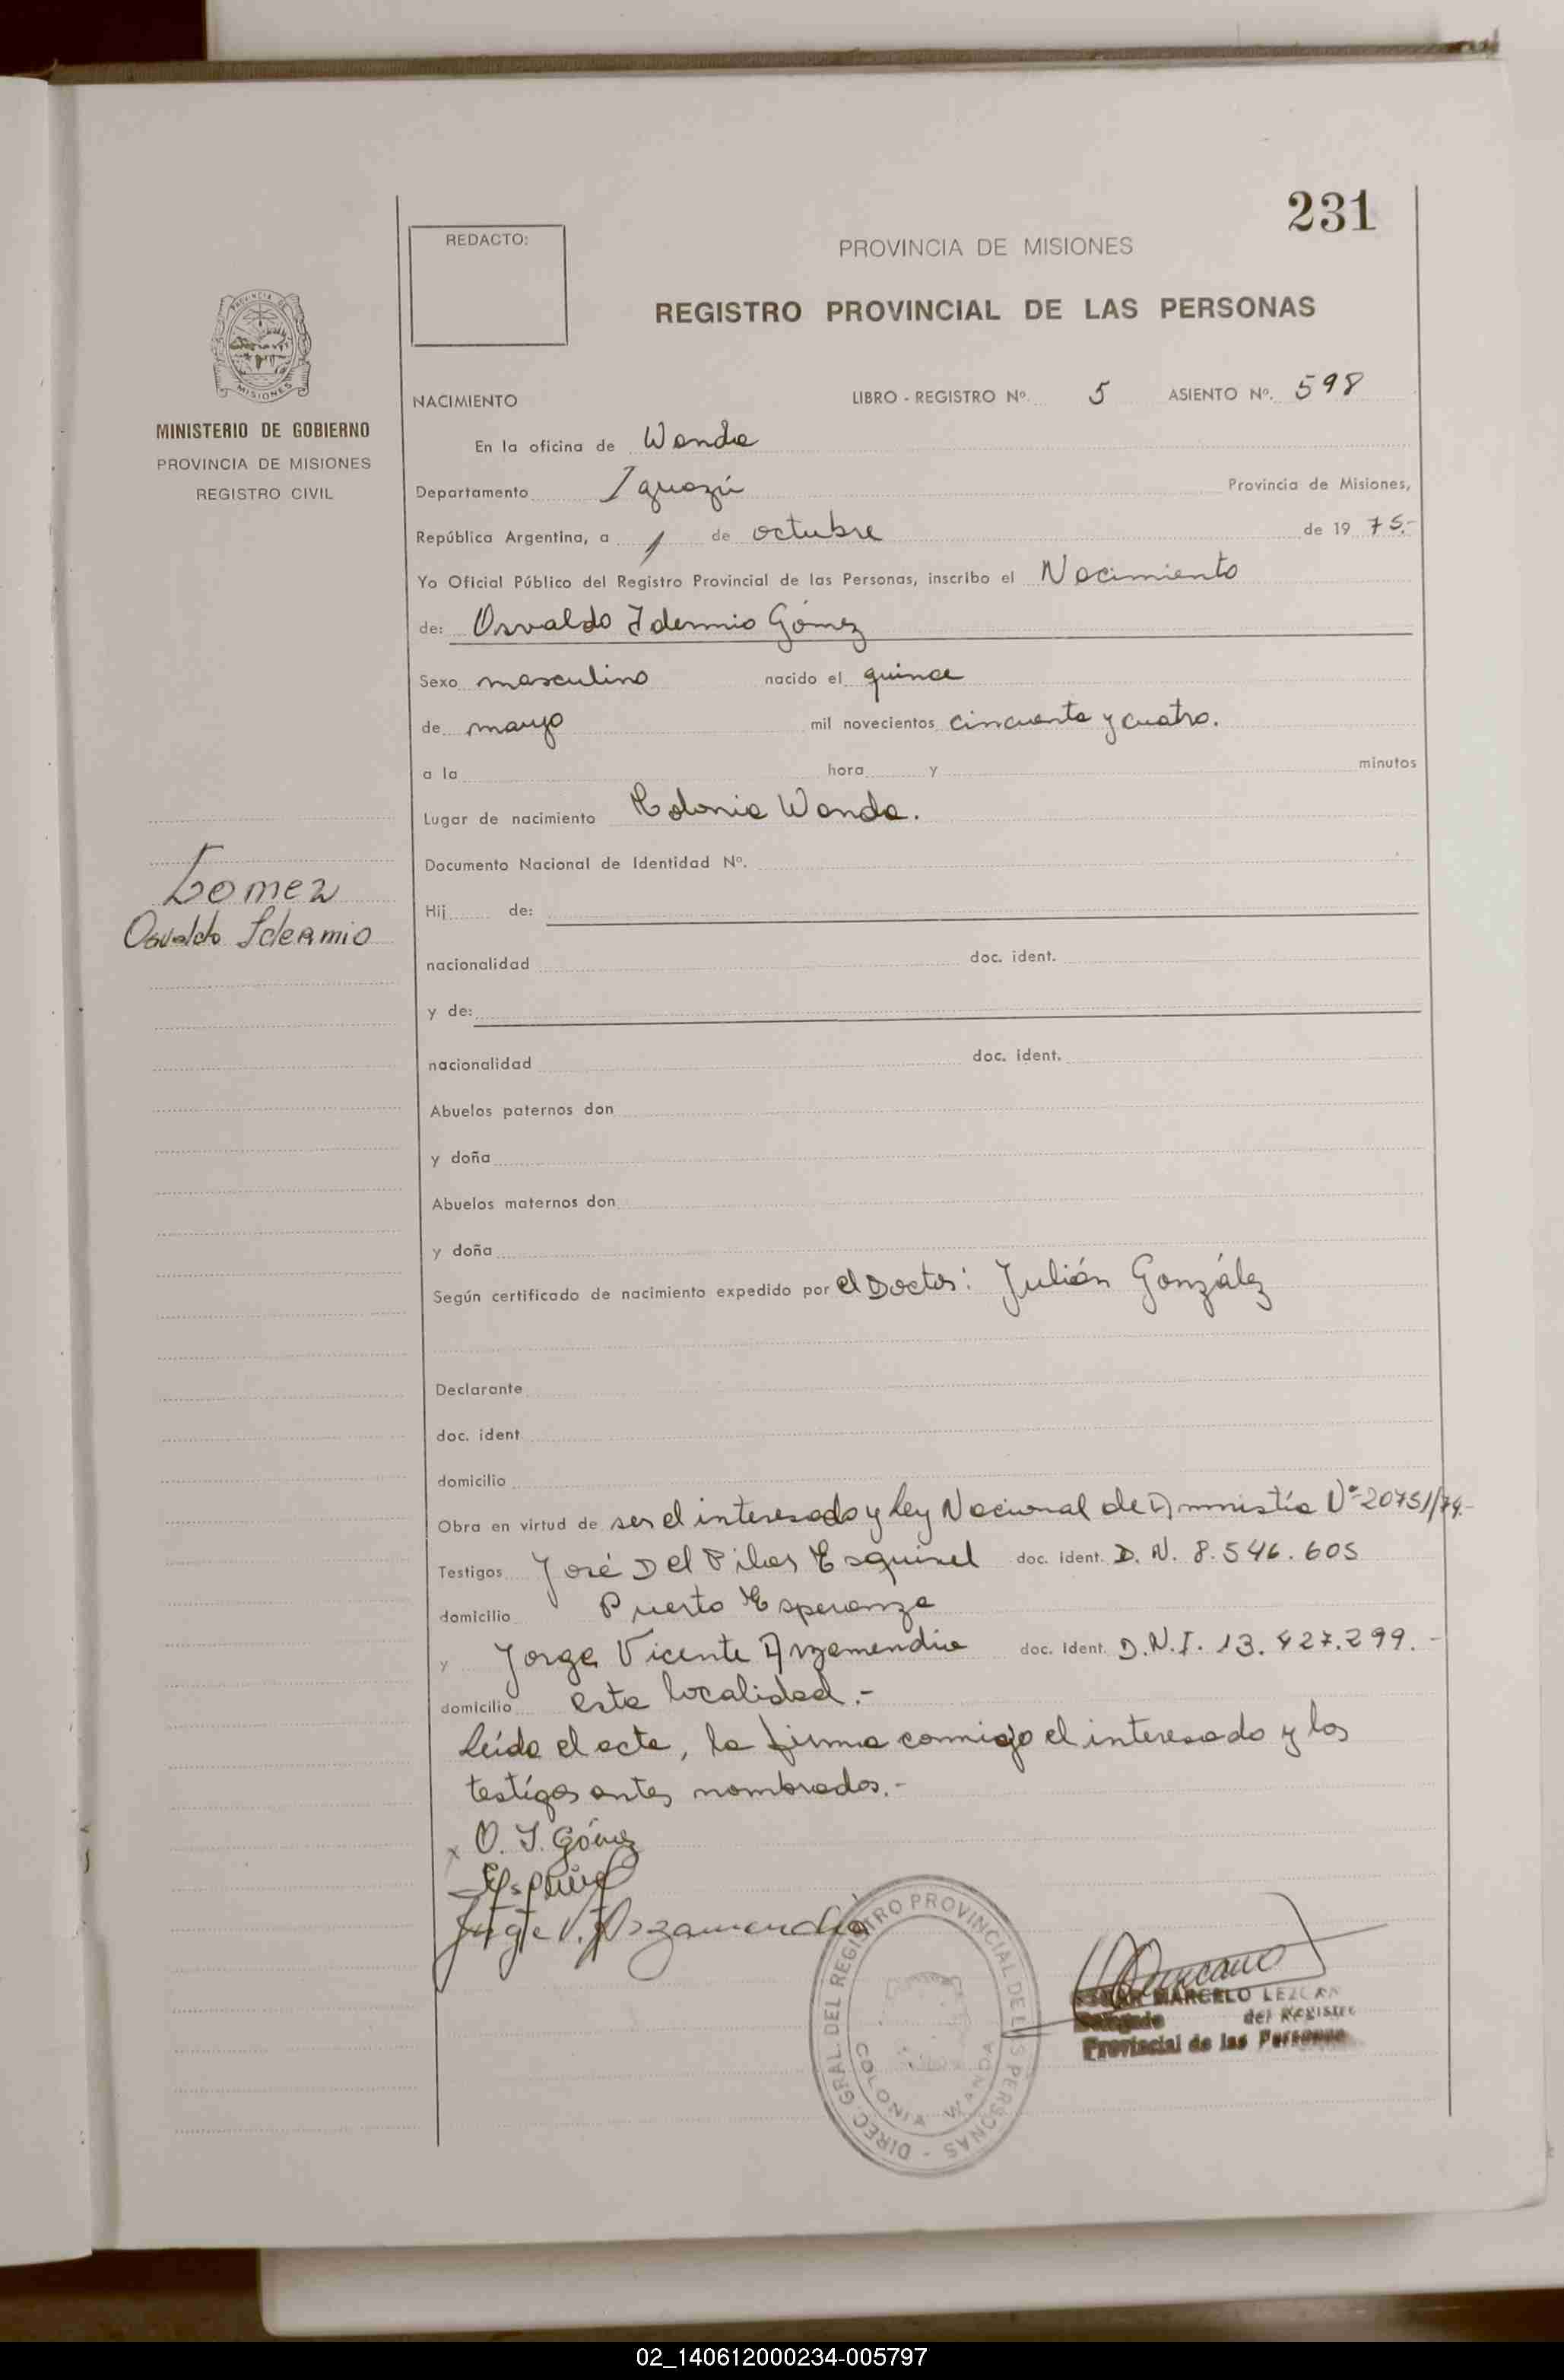 231
REDACTO:
PROVINCIA DE MISIONES
REGISTRO PROVINCIAL DE LAS PERSONAS
PROVINCIA DE
MISIONES
MINISTERIO DE GOBIERNO
PROVINCIA DE MISIONES
REGISTRO CIVIL
NACIMIENTO LIBRO - REGISTRO Nº. 5 ASIENTO Nº. 598
En la oficina de Wanda
Departamento Iguazú Provincia de Misiones,
República Argentina, a 1 de octubre de 19 75.-
Yo Oficial Público del Registro Provincial de las Personas, inscribo el Nacimiento
de: Osvaldo Idermio Gómez
Sexo masculino nacido el quince
de mayo mil novecientos cincuenta y cuatro.
a la hora y minutos
Lugar de nacimiento Colonia Wanda.
Documento Nacional de Identidad Nº.
Gomez
Osvaldo Idermio
Hij de:
nacionalidad doc. ident.
y de:
nacionalidad doc. ident.
Abuelos paternos don
y doña
Abuelos maternos don
y doña
Según certificado de nacimiento expedido por el Doctor: Julián González
Declarante
doc. ident
domicilio
Obra en virtud de ser el interesado y Ley Nacional de Amnistía Nº 20751/74.-
Testigos José Del Pilar Esquivel doc. ident. D. N. 8.546.605
domicilio Puerto Esperanza
y Jorge Vicente Arzamendia doc. ident. D.N.I. 13.427.299.-
domicilio esta localidad.-
Leída el acta, la firma conmigo el interesado y los
testigos antes nombrados.-
x O. I. Gómez
Esquivel
Jorge V. Arzamendia
DIREC. GRAL. DEL REGISTRO PROVINCIAL DE LAS PERSONAS -
COLONIA WANDA
MARCELO LEZCANO
Delegado del Registro
Provincial de las Personas
02_140612000234-005797